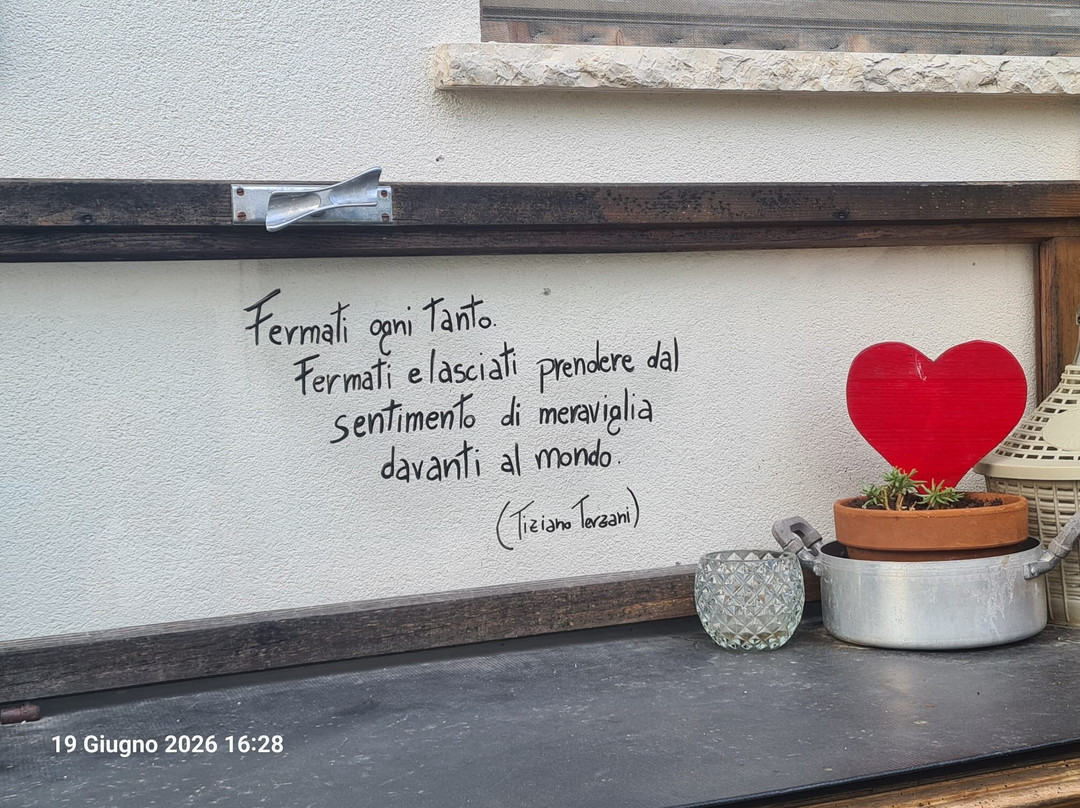 Fermati ogni tanto.
Fermati e lasciati prendere dal
sentimento di meraviglia
davanti al mondo.
(Tiziano Terzani)
19 Giugno 2026 16:28